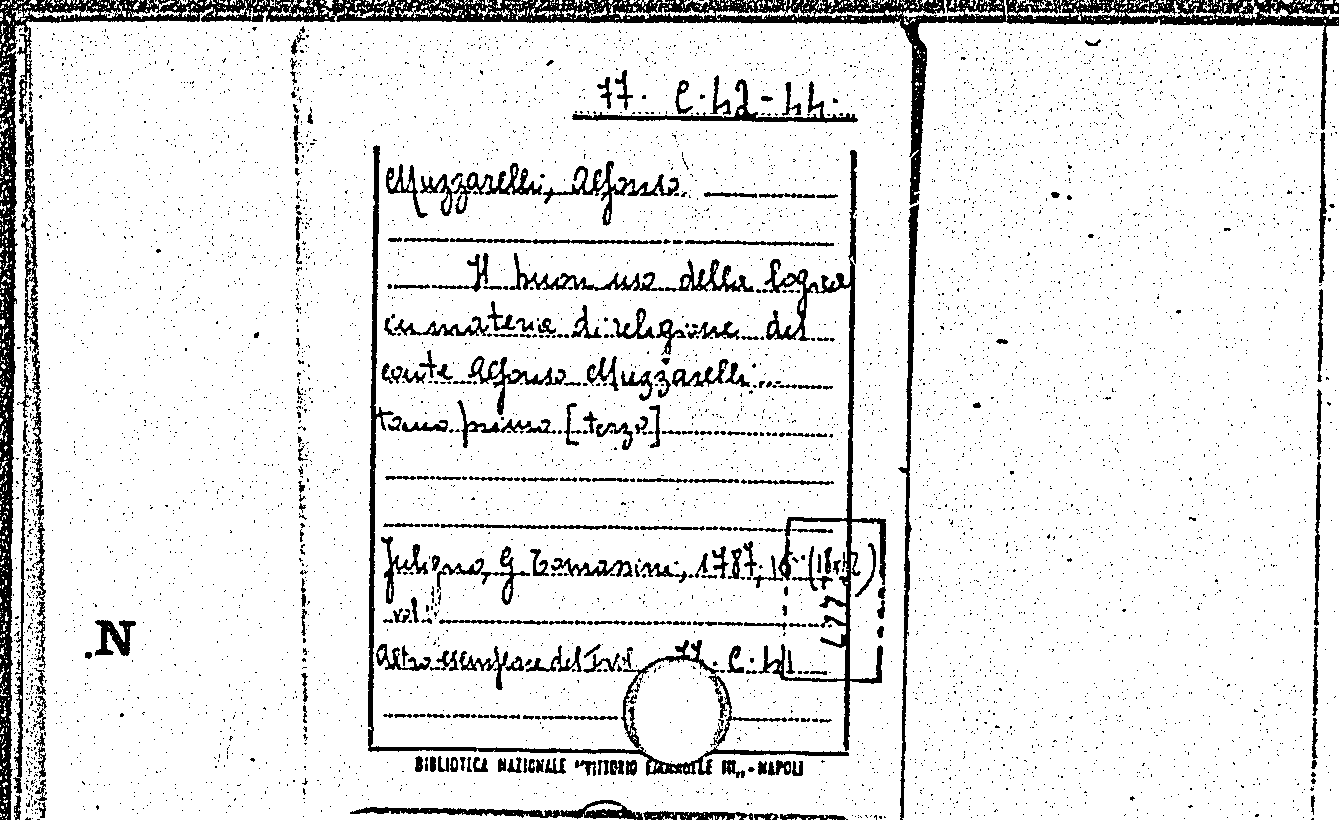 77. C. 42-44.
Muzzarelli, Alfonso
Il buon uso della logica
in materia di religione del
conte Alfonso Muzzarelli...
tomo primo [terzo]
Juligno, G. Tomassini, 1787; 16° (18x12)
vol.
Altro esemplare del I vol. 77. C. 41
.N
BIBLIOTECA NAZIONALE "VITTORIO EMANUELE III" - NAPOLI